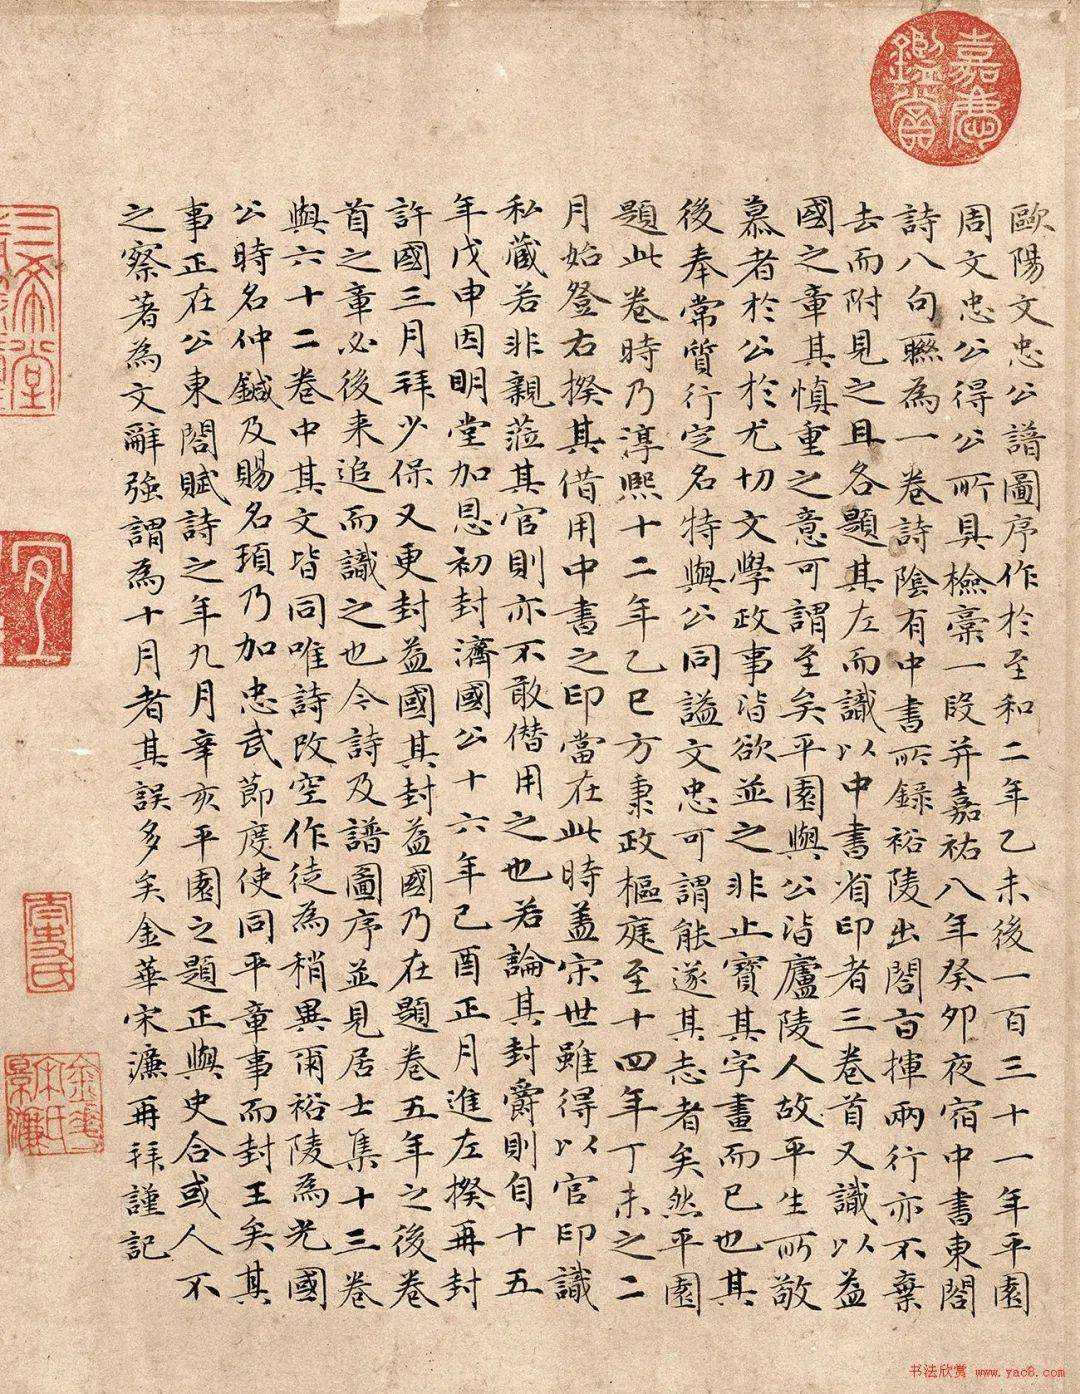 歐陽文忠公譜圖序作於至和二年乙未後一百三十一年平園
周文忠公得公所具檢藁一段并嘉祐八年癸卯夜宿中書東閤
詩八句聯為一卷詩陰有中書所錄裕陵出閤百揮兩行亦不棄
去而附見之且各題其左而識以中書省印者三卷首又識以益
國之章其慎重之意可謂至矣平園與公皆廬陵人故平生所敬
慕者於公於尤切文學政事皆欲並之非止寶其字畫而已也其
後奉常質行定名特與公同謚文忠可謂能遂其志者矣然平園
題此卷時乃淳熙十二年乙巳方秉政樞庭至十四年丁未之二
月始登右揆其借用中書之印當在此時蓋宋世雖得以官印識
私藏若非親蒞其官則亦不敢僭用之也若論其封爵則自十五
年戊申因明堂加恩初封濟國公十六年己酉正月進左揆再封
許國三月拜少保又更封益國其封益國乃在題卷五年之後卷
首之章必後来追而識之也今詩及譜圖序並見居士集十三卷
與六十二卷中其文皆同唯詩改空作徒為稍異爾裕陵為光國
公時名仲鍼及賜名頊乃加忠武節度使同平章事而封王矣其
事正在公東閤賦詩之年九月辛亥平園之題正與史合或人不
之察著為文辭強謂為十月者其誤多矣金華宋濂再拜謹記
嘉慶鑑賞
三希堂
金華宋氏景濂
书法欣赏 www.yac8.com